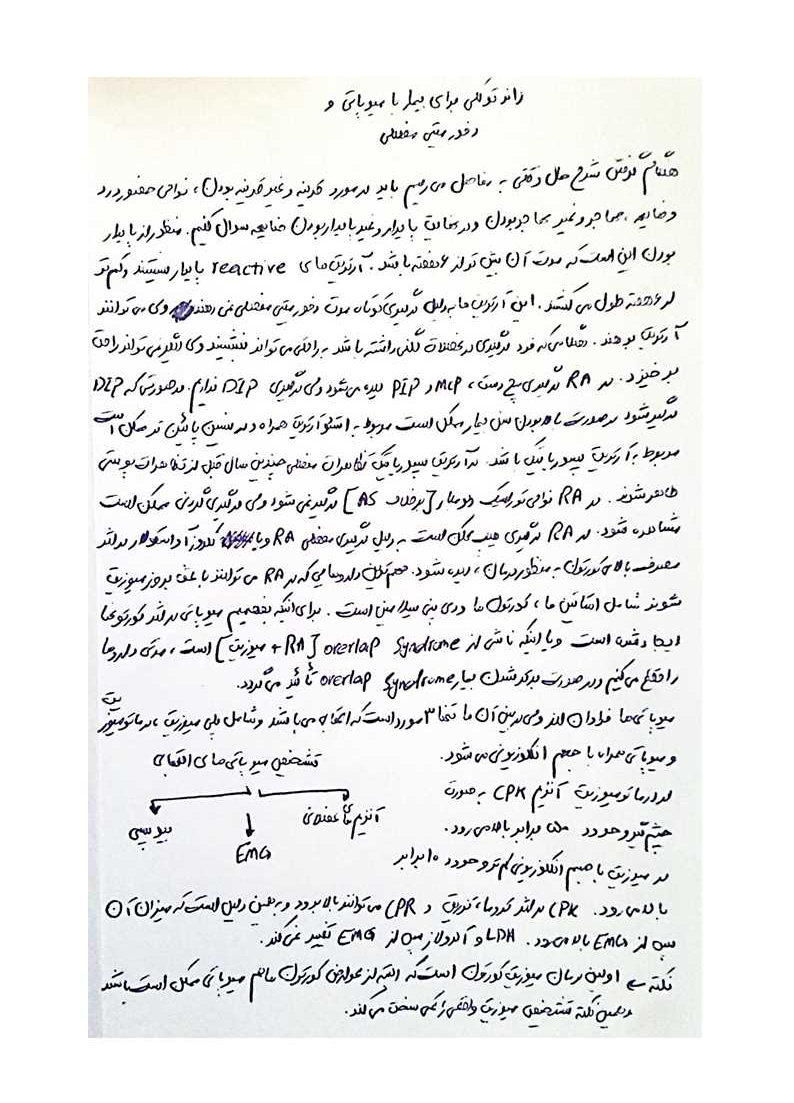 راند توکلی برای بیمار با میوپاتی و
دفورمیتی مفصلی
هنگام گرفتن شرح حال وقتی به مفاصل می رسیم باید در مورد قرینه و غیر قرینه بودن، نواحی حضور درد
و ضایعه، مهاجر و غیر مهاجر بودن و در نهایت پایدار و غیر پایدار بودن ضایعه سوال کنیم. منظور از پایدار
بودن این است که مدت آن بیش تر از ۶ هفته باشد. آرتریت های reactive پایدار نیستند و کم تر
از ۶ هفته طول می کشند. این آرتریت ها به دلیل درگیری کوتاه مدت دفورمیتی مفصلی نمی دهند ولی می توانند
آرتریت بدهند. هنگامی که فرد درگیری در عضلات لگنی داشته باشد به راحتی می تواند بنشیند ولی دیگر نمی تواند راحت
بر خیزد. در RA درگیری مچ دست، MCP و PIP دیده می شود ولی درگیری DIP نداریم. در صورتی که DIP
درگیر شود در صورت بالا بودن سن بیمار ممکن است مربوط به استئوآرتریت همراه و در سنین پائین تر ممکن است
مربوط به آرتریت پسوریاتیک باشد. در آرتریت پسوریاتیک تظاهرات مفصلی چندین سال قبل از تظاهرات پوستی
ظاهر شوند. در RA نواحی توراسیک و لومبار [بر خلاف AS] درگیر نمی شود ولی درگیری گردنی ممکن است
مشاهده شود. در RA درگیری هیپ ممکن است به دلیل درگیری مفصلی RA و یا نکروز آواسکولار در اثر
مصرف بالای کورتون به منظور درمان، دیده شود. مهم ترین داروهایی که در RA می توانند باعث بروز میوزیت
شوند شامل استاتین ها، کورتون ها و دی پنی سیلامین است. برای اینکه بفهمیم میوپاتی در اثر کورتون ها
ایجاد شده است و یا اینکه ناشی از overlap syndrome [RA + میوزیت] است، مدتی داروها
را قطع می کنیم و در صورت بدتر شدن بیمار overlap syndrome تأئید می گردد.
میوپاتی ها فراوان اند ولی در بین آن ها تنها ۳ مورد است که التهابی می باشد و شامل پلی میوزیت، درماتومیوزیت
و میوپاتی همراه با جسم انکلوزیونی می شود.
تشخیص میوپاتی های التهابی
در درماتومیوزیت آنزیم CPK به صورت
چشم گیر و حدود ۵۰ برابر بالا می رود.
آنزیم های عضلانی
EMG
بیوپسی
در میوزیت با جسم انکلوزیونی کم تر و حدود ۱۰ برابر
بالا می رود. CPK در اثر تروما، تزریق و CPR می تواند بالا برود و به همین دلیل است که میزان آن
پس از EMG بالا می رود. LDH و آلدولاز پس از EMG تغییر نمی کند.
نکته ← اولین درمان میوزیت کورتون است که البته از عوارض کورتون ها هم میوپاتی ممکن است باشد
و همین نکته تشخیص میوزیت واقعی را کمی سخت می کند.